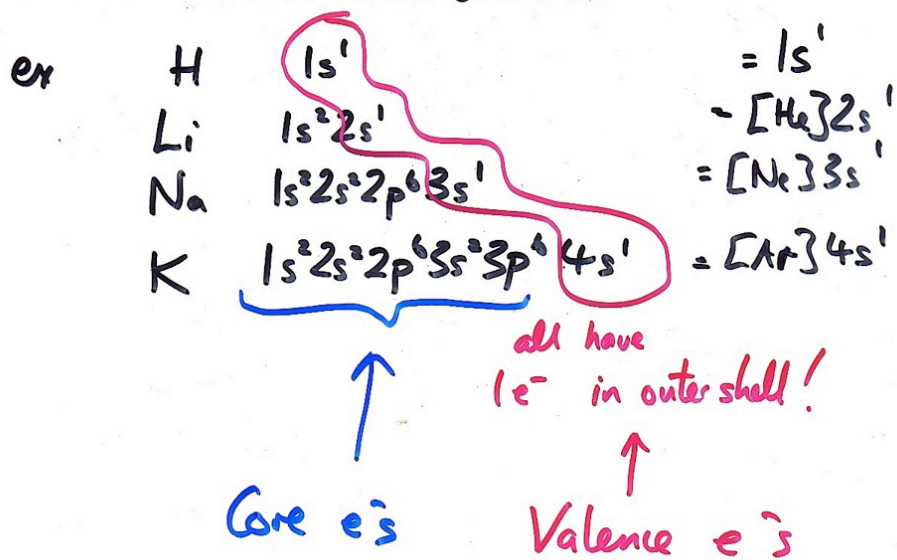 ex H 1s¹ = 1s¹
Li 1s²2s¹ = [He]2s¹
Na 1s²2s²2p⁶3s¹ = [Ne]3s¹
K 1s²2s²2p⁶3s²3p⁶4s¹ = [Ar]4s¹
all have
1e⁻ in outer shell!
Core e⁻s Valence e⁻s